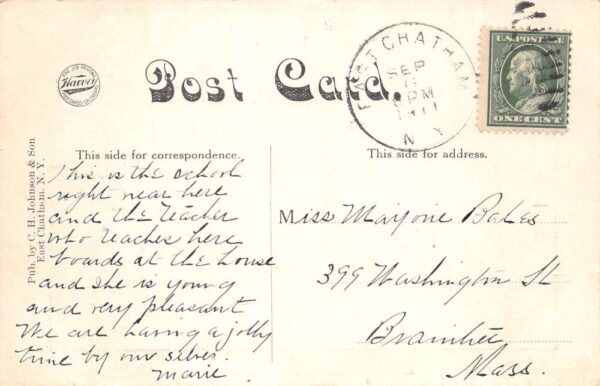 Harvey
Post Card.
EAST CHATHAM
SEP
6
PM
1911
N Y
U.S. POSTAGE
ONE CENT
Pub. by C. H. Johnson & Son
East Chatham, N. Y.
This side for correspondence.
This is the school
right near here
and the teacher
who teaches here
boards at the house
and she is young
and very pleasant
We are having a jolly
time by our selves.
Marie.
This side for address.
Miss Marjorie Bates
399 Washington St
Braintree
Mass.